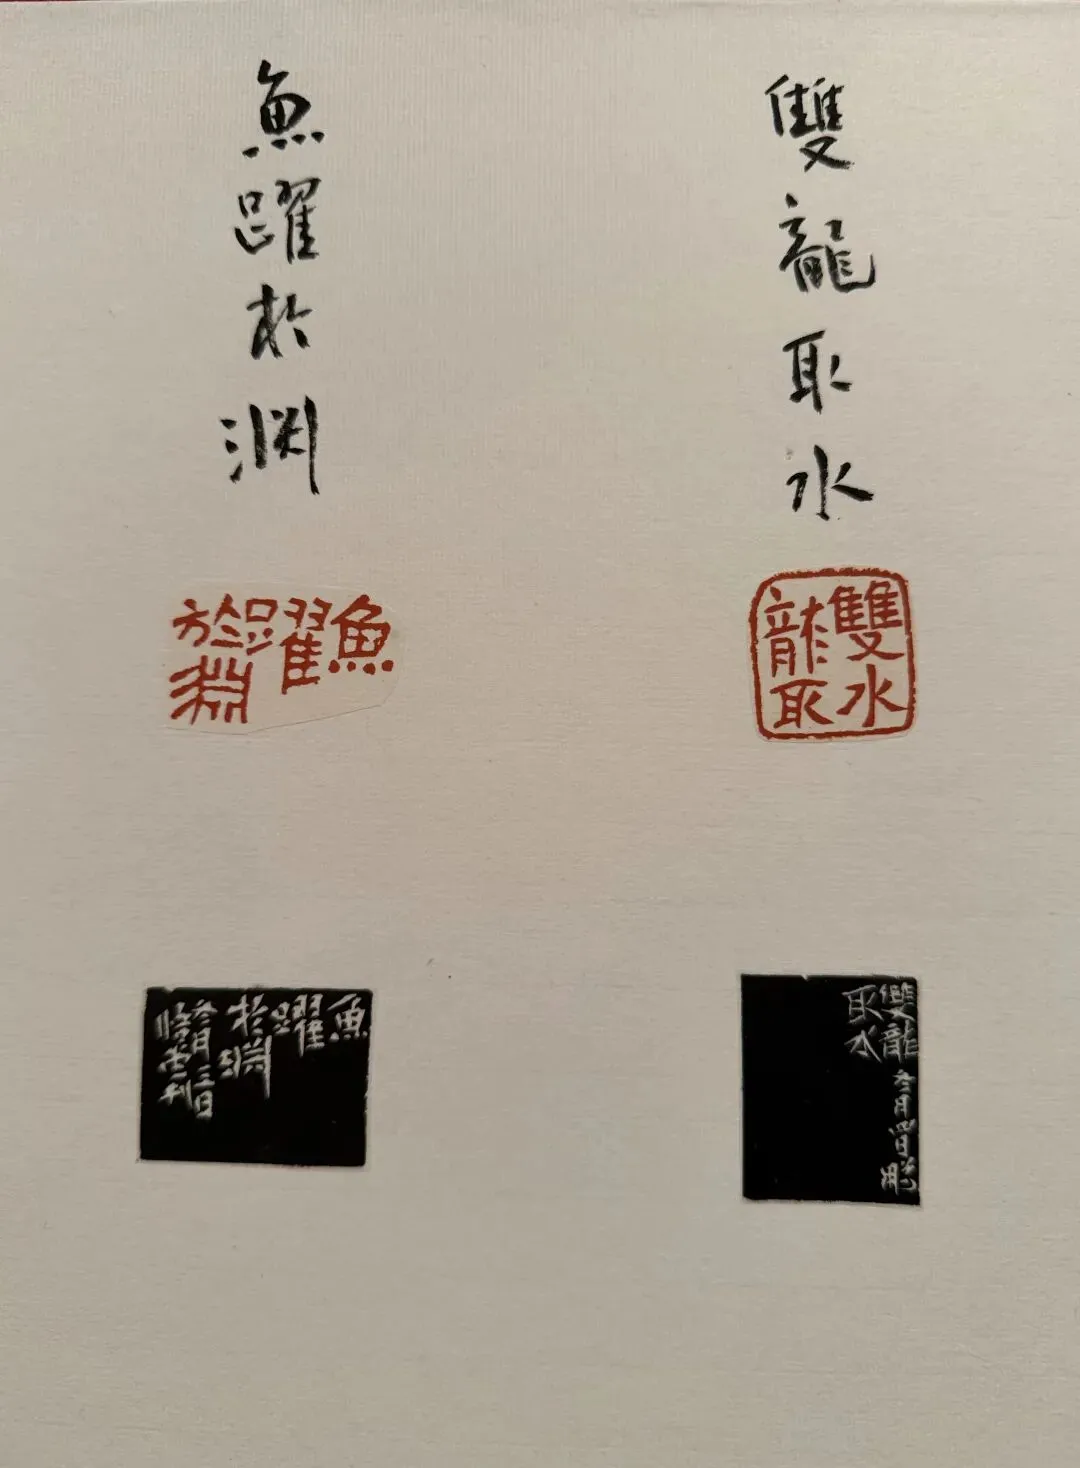 雙龍取水
魚躍於淵
雙水
龍取
魚躍於淵
雙龍
取水
魚
躍
於淵
叁月三日